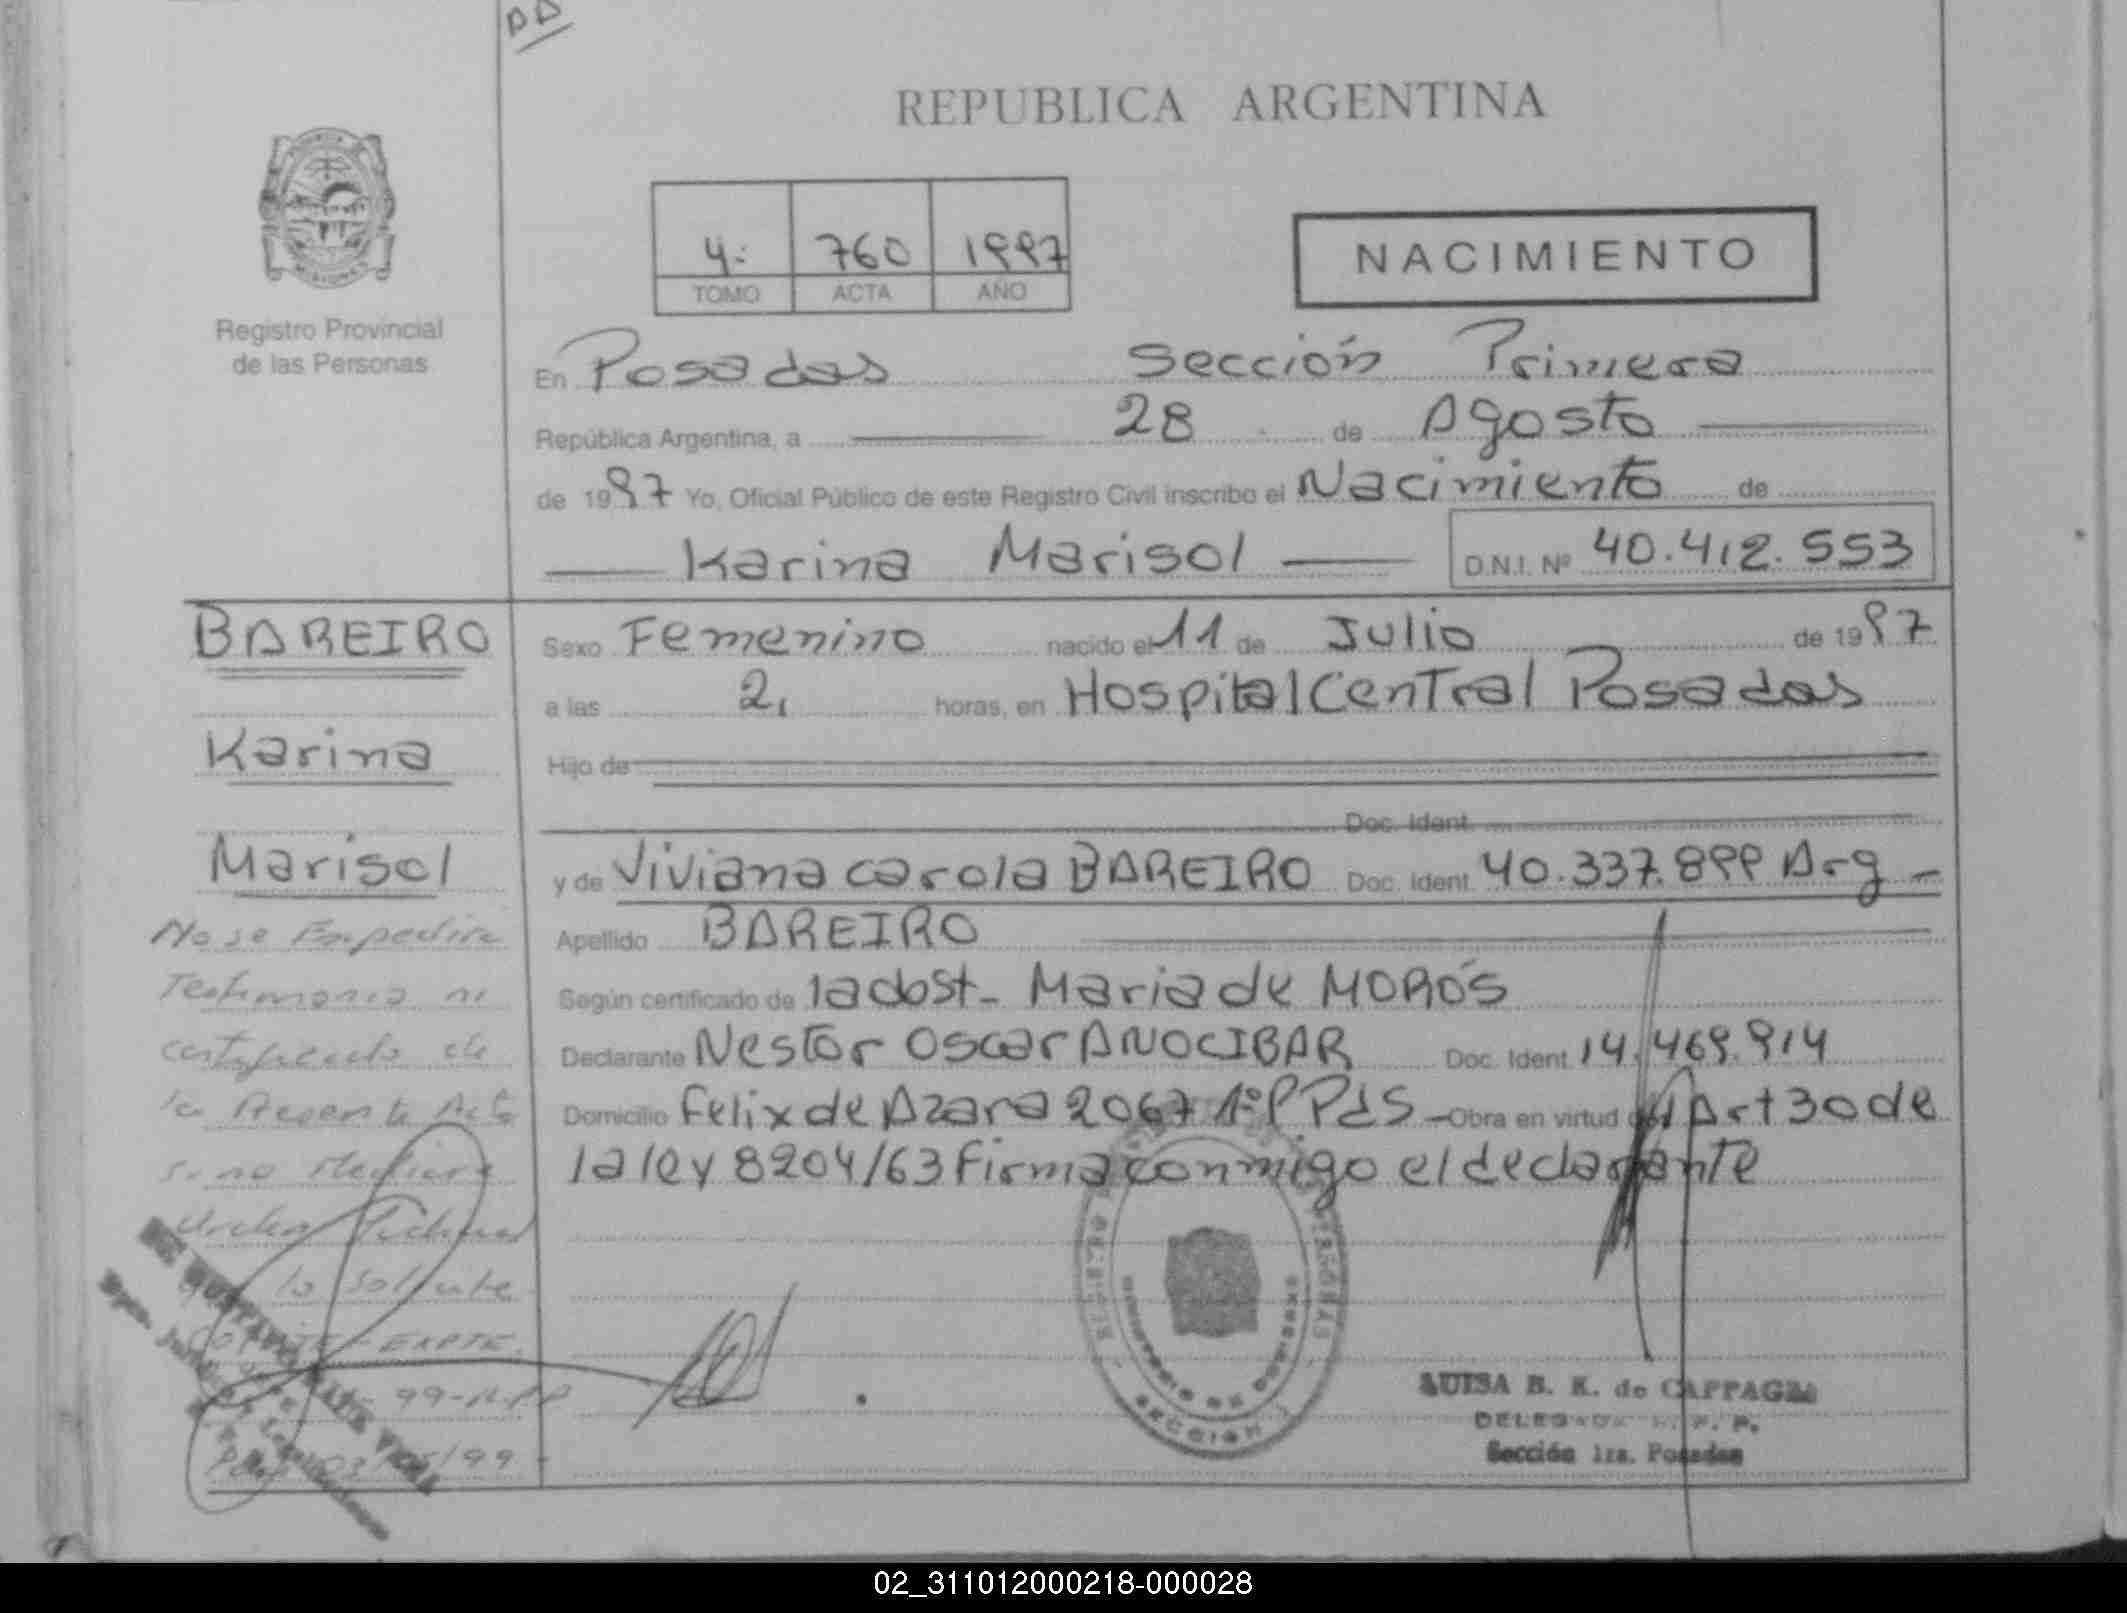 REPUBLICA ARGENTINA
4: 760 1997
TOMO ACTA AÑO
NACIMIENTO
MISIONES
Registro Provincial
de las Personas
En Posadas Sección Primera
República Argentina, a 28 de Agosto
de 1997 Yo, Oficial Público de este Registro Civil inscribo el Nacimiento de
Karina Marisol D.N.I. Nº 40.412.553
BAREIRO
Karina
Marisol
No se Expedira
Testimonio ni
certificado de
la Presente Acta
si no Mediare
Orden Judicial
lo solicite
EXPTE.
99-R.P.P
Sexo Femenino nacido el 11 de Julio de 1997
a las 2, horas, en Hospital Central Posadas
Hijo de
Doc. Ident.
y de Viviana Carola BAREIRO Doc. Ident. 40.337.899 Arg -
Apellido BAREIRO
Según certificado de la obst- Maria de MORÓS
Declarante Nestor Oscar ANOCIBAR Doc. Ident. 14.469.914
Domicilio Felix de Azara 2067 1º P Pds - Obra en virtud del Art 30 de
la ley 8204/63 Firma conmigo el declarante
LUISA B. K. de CAPPAGLI
DELEGADA R. P. P.
Sección 1ra. Posadas
02_311012000218-000028